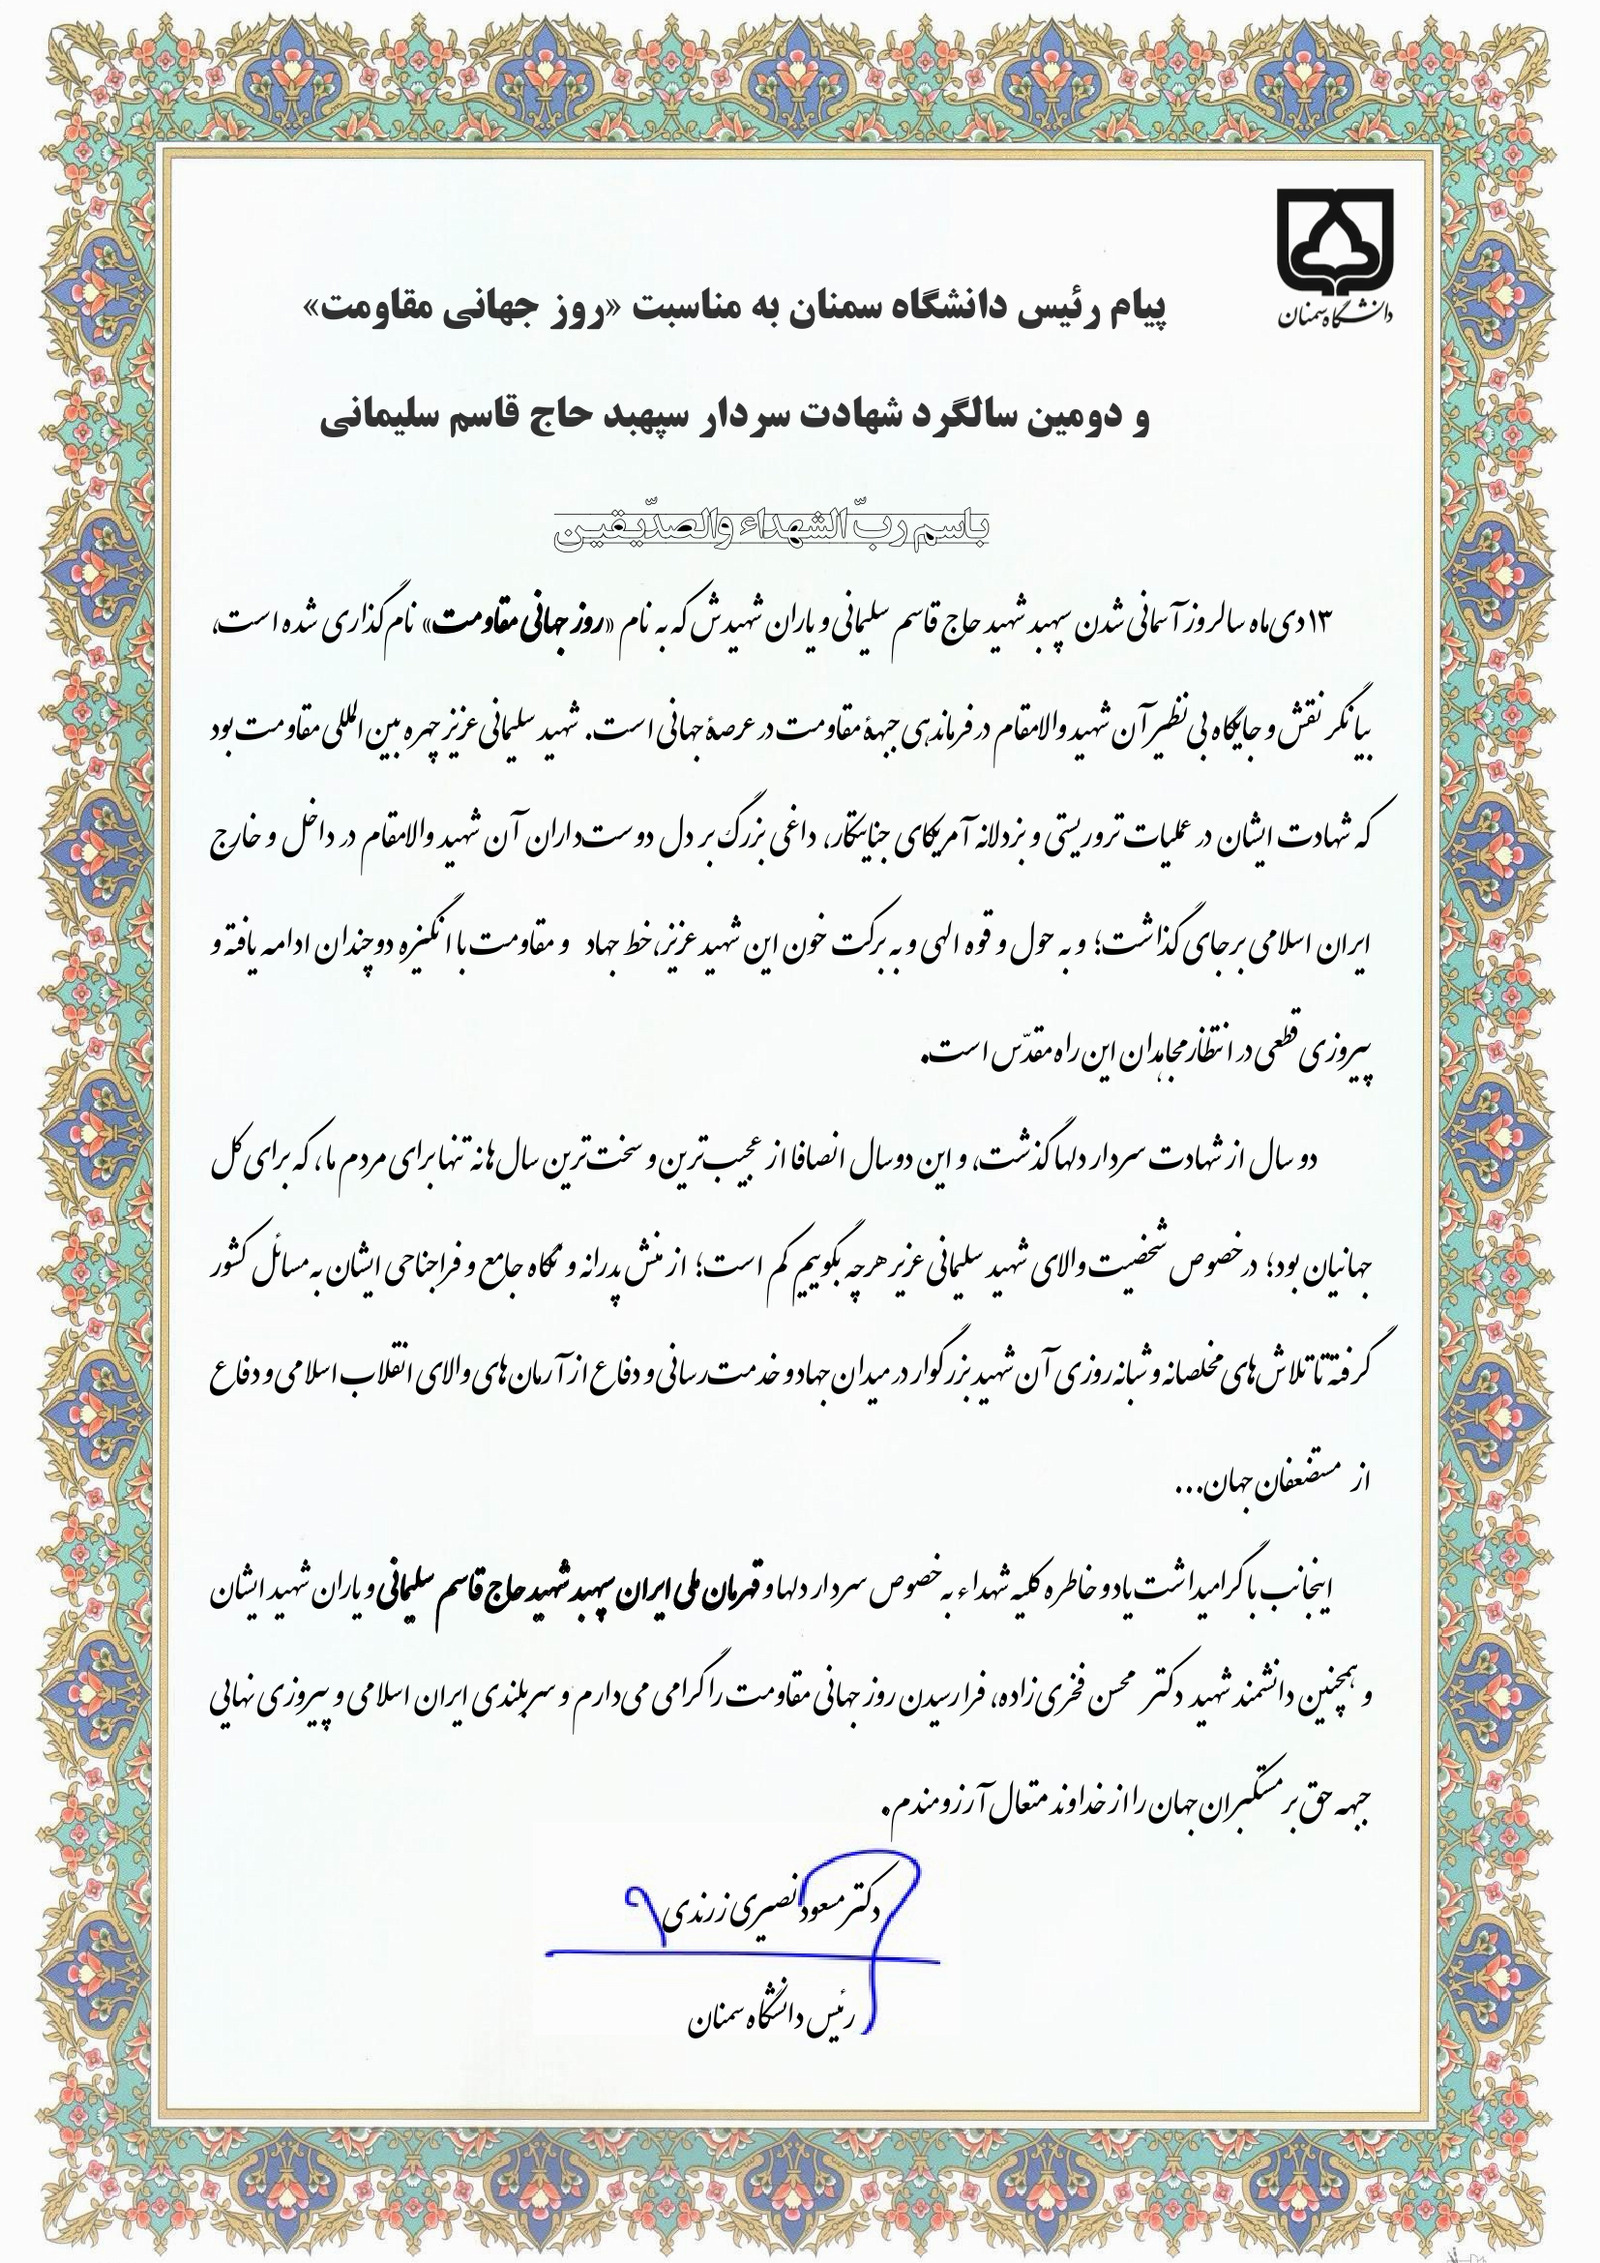 دانشگاه سمنان
پیام رئیس دانشگاه سمنان به مناسبت «روز جهانی مقاومت»
و دومین سالگرد شهادت سردار سپهبد حاج قاسم سلیمانی
باسم ربّ الشهداء والصدّیقین
۱۳دی‌ماه سالروز آسمانی شدن سپهبد شهید حاج قاسم سلیمانی و یاران شهیدش که به نام «روز جهانی مقاومت» نام‌گذاری شده است،
بیانگر نقش و جایگاه بی نظیر آن شهید والامقام در فرماندهی جبههٔ مقاومت در عرصهٔ جهانی است. شهید سلیمانی عزیز چهره بین المللی مقاومت بود
که شهادت ایشان در عملیات تروریستی و بزدلانه آمریکای جنایتکار، داغی بزرگ بر دل دوست‌داران آن شهید والامقام در داخل و خارج
ایران اسلامی برجای گذاشت؛ و به حول و قوه الهی و به برکت خون این شهید عزیز، خط جهاد و مقاومت با انگیزه دوچندان ادامه یافته و
پیروزی قطعی در انتظار مجاهدان این راه مقدّس است.
دو سال از شهادت سردار دلها گذشت، و این دوسال انصافا از عجیب‌ترین و سخت‌ترین سال‌ها نه تنها برای مردم ما، که برای کل
جهانیان بود؛ در خصوص شخصیت والای شهید سلیمانی عزیز هرچه بگوییم کم است؛ از منش پدرانه و نگاه جامع و فراجناحی ایشان به مسائل کشور
گرفته تا تلاش‌های مخلصانه و شبانه‌روزی آن شهید بزرگوار در میدان جهاد و خدمت‌رسانی و دفاع از آرمان‌های والای انقلاب اسلامی و دفاع
از مستضعفان جهان...
اینجانب با گرامیداشت یاد و خاطره کلیه شهداء به خصوص سردار دلها و قهرمان ملی ایران سپهبد شهید حاج قاسم سلیمانی و یاران شهید ایشان
و همچنین دانشمند شهید دکتر محسن فخری‌زاده، فرارسیدن روز جهانی مقاومت را گرامی می‌دارم و سربلندی ایران اسلامی و پیروزی نهایی
جبهه حق بر مستکبران جهان را از خداوند متعال آرزومندم.
دکتر مسعود نصیری زرندی
رئیس دانشگاه سمنان